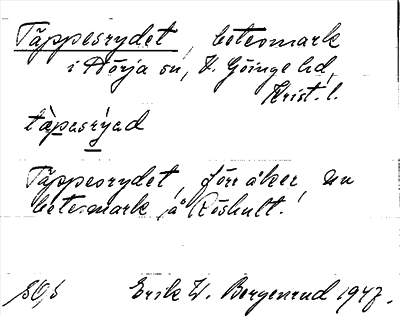 Täppesrydet, betesmark
i Pörja sn, V. Göinge hd,
Krist. l.
tàpasrýad
Täppesrydet, förr åker, nu
betesmark å Röshult.
Erik W. Borgenrud 1947.